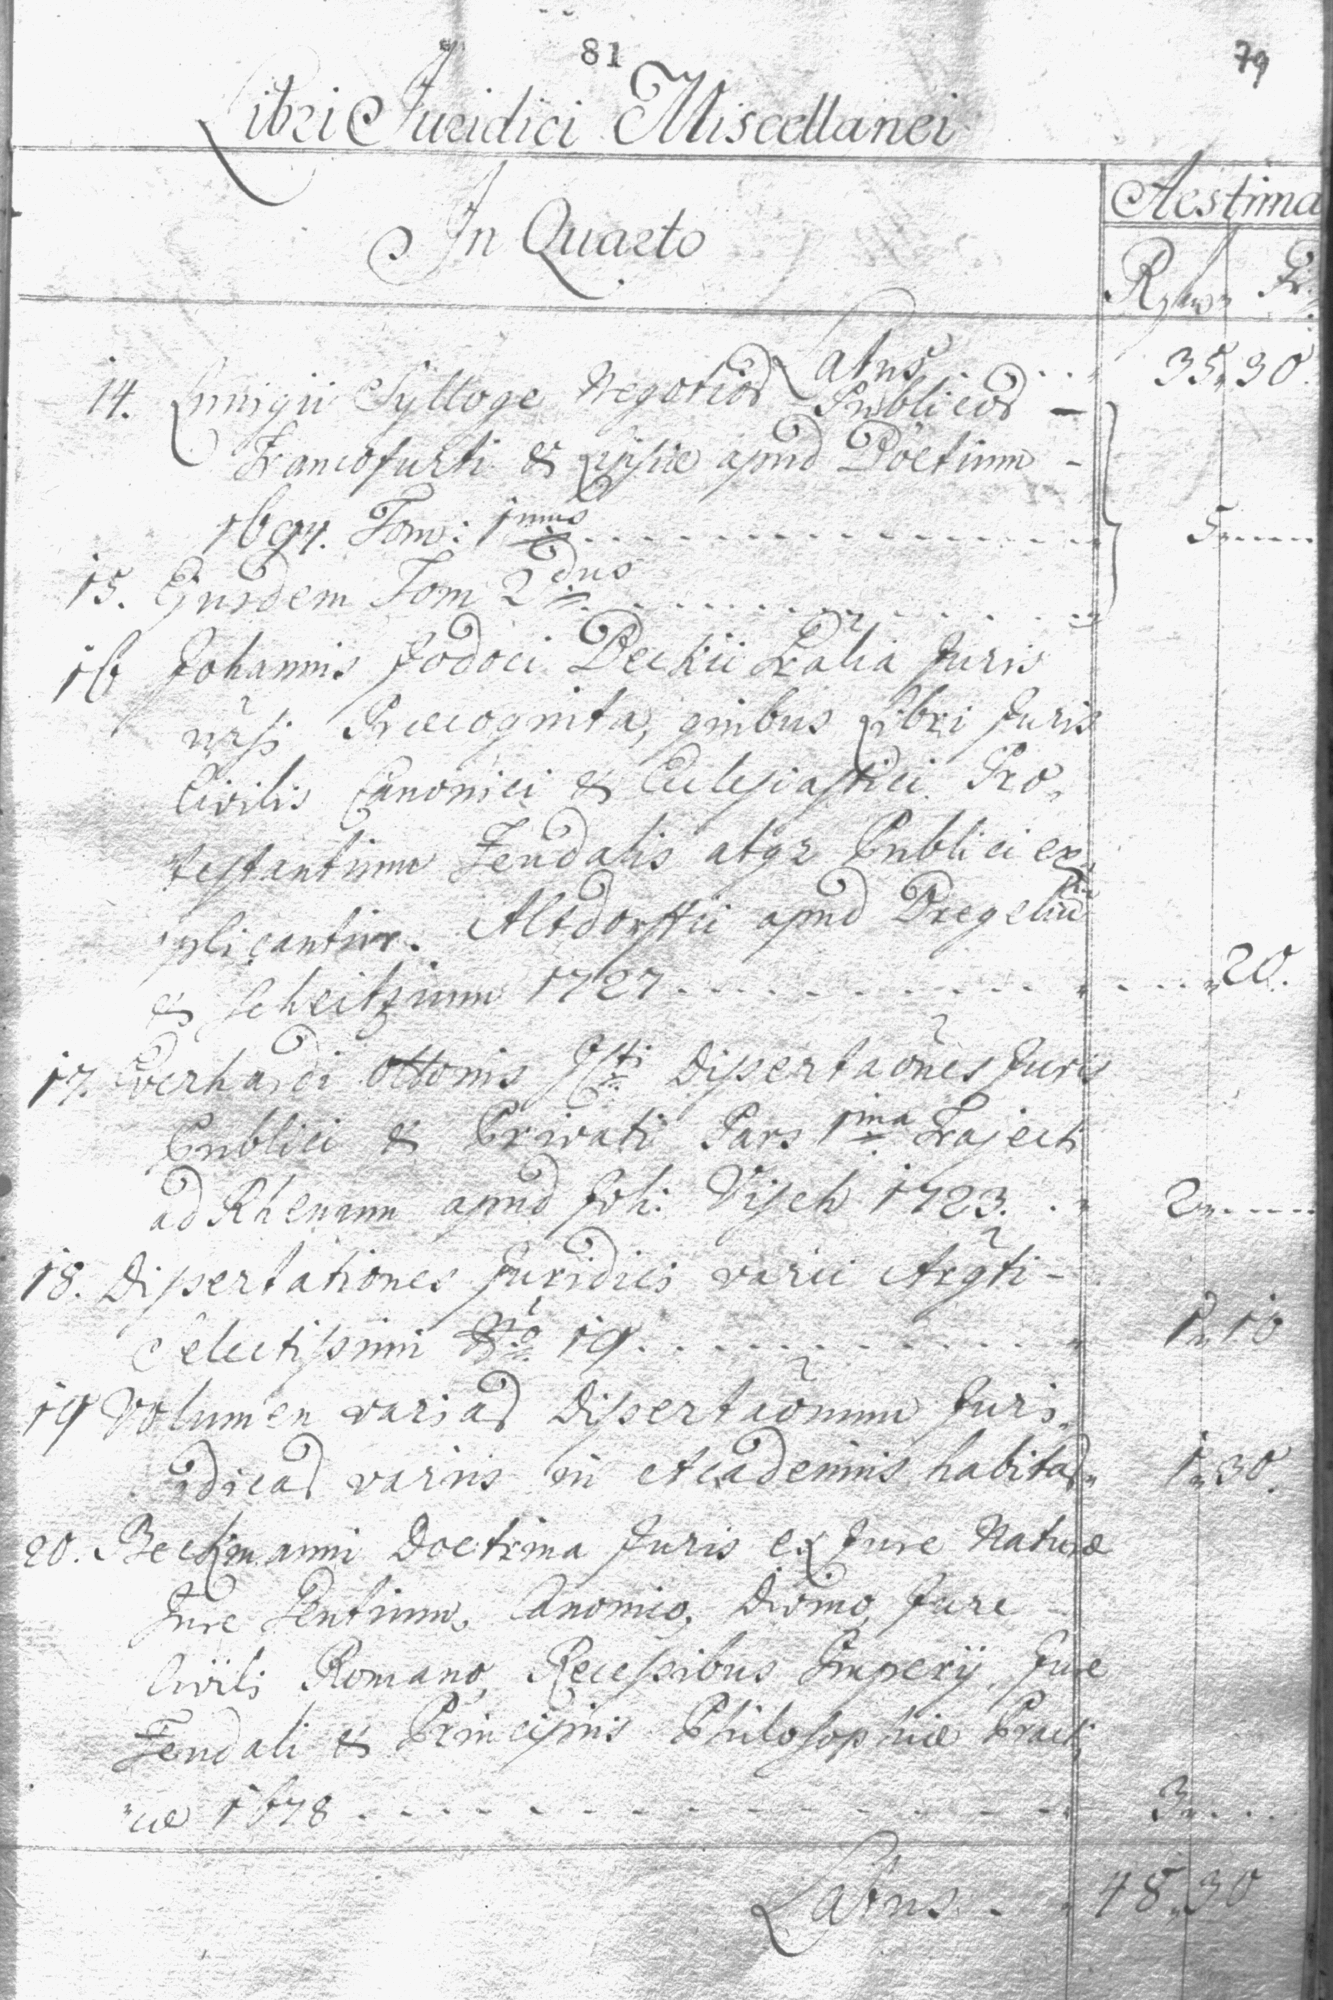 81
79
Libri Juridici Miscellanei
In Quarto
Aestima
Rhn Xr.
Latus . . . 35. 30.
14. Lunigii Sylloge Negotior Publicor –
Francofurti & Lipsiæ apud Boetium –
1694. Tom: 1mus
5
15. Ejusdem Tom 2dus
16 Johannis Jodoci Beckii Tralia Juris
Præcognita, quibus Libri Juris
Civilis Canonici & Ecclesiastici Pro,
testantium Feudalis atqz Publici ex,
plicantur. Altdorffii apud Bregeliu
& Scheitzium 1727 20.
17. Everhardi Ottonis Jcti Dissertaões Juris
Publici & Privati Pars 1ma Trajecti
ad Rhenum apud Joh: Visch 1723. 2
18. Dissertationes Juridicæ varii Argti –
Selectissimi Nro 19 1 16
19 Volumen variar Dissertaõnum Juri,
dicar variis in Academiis habitar 1 30.
20. Beckmanni Doctrina Juris ex Jure Naturæ
Jure Gentium, Canonico, Divino, Jure
Civili Romano, Recessibus Imperij, Jure
Feudali & Principiis Philosophiæ Pract,
icæ 1678 3
Latus . . 48 30